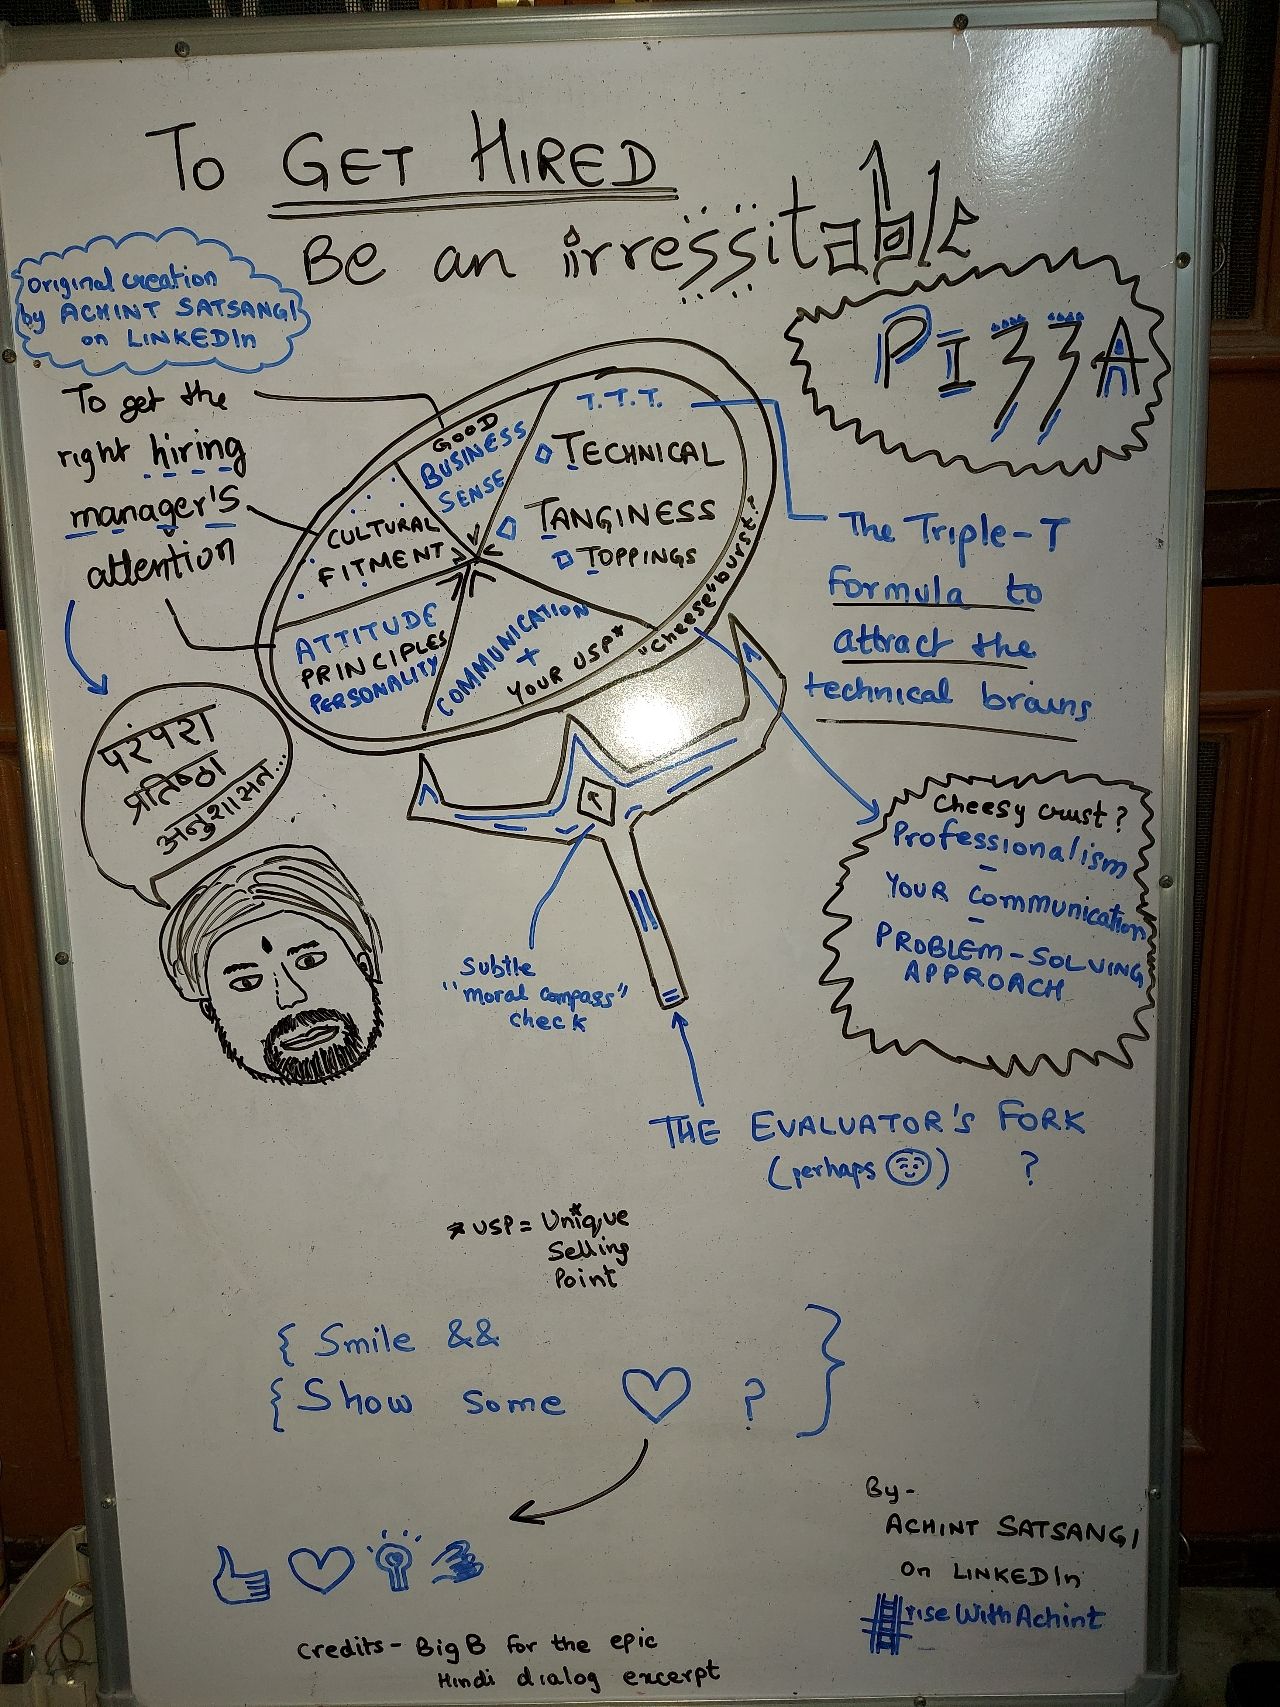 To GET HIRED
Be an irressitable
PIZZA
original creation
by ACHINT SATSANGI
on LINKEDIn
To get the
right hiring
manager's
attention
GOOD
BUSINESS
SENSE
CULTURAL
FITMENT
ATTITUDE
PRINCIPLES
PERSONALITY
COMMUNICATION
+
YOUR USP*
T.T.T.
TECHNICAL
TANGINESS
TOPPINGS
"cheese" burst?
The Triple-T
Formula to
attract the
technical brains
Cheesy crust?
Professionalism
-
YOUR Communication
-
PROBLEM-SOLVING
APPROACH
परंपरा
प्रतिष्ठा
अनुशासन...
Subtle
"moral compass"
check
THE EVALUATOR'S FORK
(perhaps 😊) ?
* USP = Unique*
Selling
Point
{ Smile &&
{ Show some ♡ ? }
By-
ACHINT SATSANGI
on LINKEDIn
#riseWithAchint
Credits - Big B for the epic
Hindi dialog excerpt